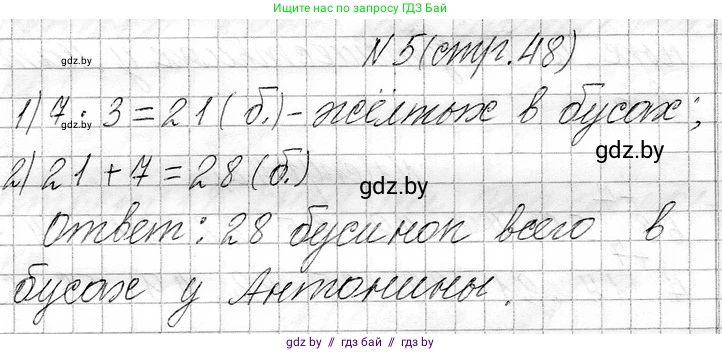 Ищите нас по запросу ГДЗ Бай
N 5 (стр. 48)
gdz.by
1) 7 · 3 = 21 (б.) - жёлтых в бусах;
gdz.by
gdz.by
2) 21 + 7 = 28 (б.)
gdz.by
Ответ: 28 бусинок всего в
бусах у Антонины.
gdz.by
gdz.by // гдз бай // gdz.by